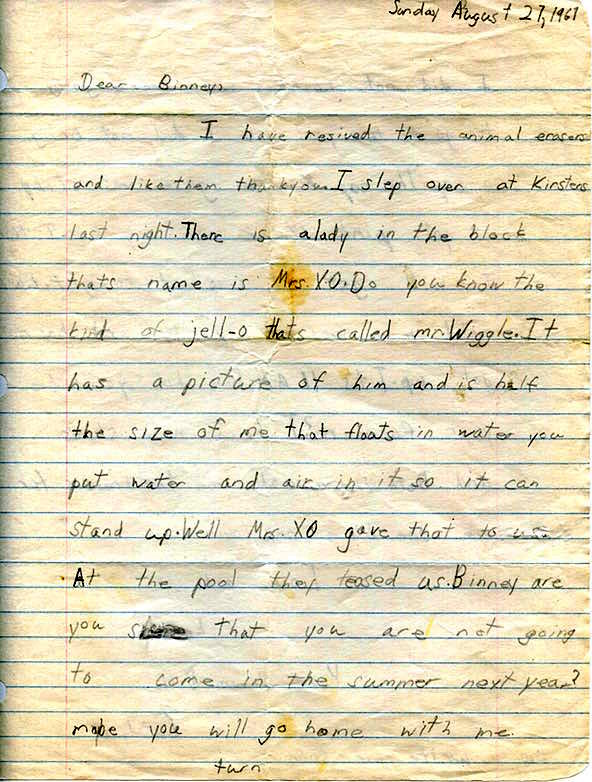 Sunday August 27, 1967
Dear Binney,
I have resived the animal erasers
and like them thankyou. I slep over at Kirstens
last night. There is a lady in the block
thats name is Mrs. XO. Do you know the
kind of jell-o thats called mr. Wiggle. It
has a picture of him and is half
the size of me that floats in water you
put water and air in it so it can
stand up. Well Mrs. XO gave that to us.
At the pool they teased us. Binney are
you that you are not going
to come in the summer next year?
mabe you will go home with me.
turn